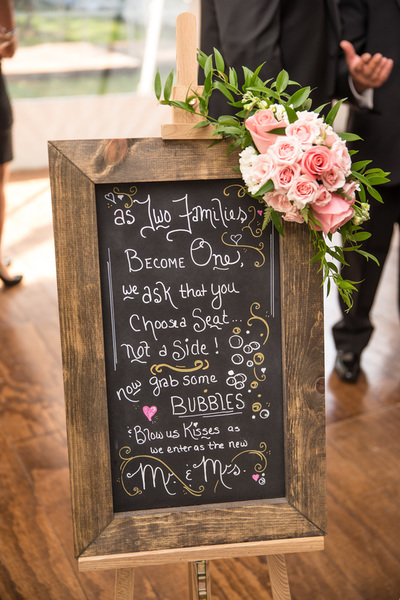 as Two Families
Become One,
we ask that you
Choose a Seat...
Not a Side!
now grab some
BUBBLES
& Blow us Kisses as
we enter as the new
Mr. & Mrs.